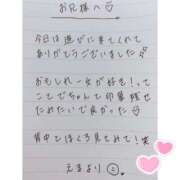 お兄様へ♡
今日は遊びに来てくれて
ありがとうございました
おもしれー女が好き！って
ことでてんで印象残せ
たみたいで良かった♡
背中でほくろ見てみて！笑
えまより